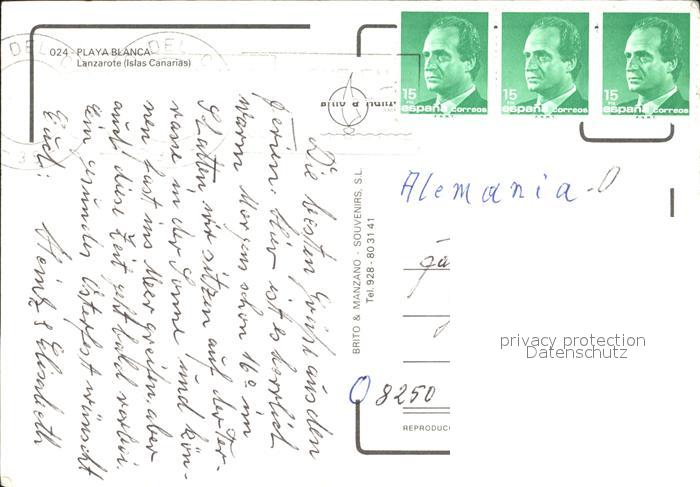 024 - PLAYA BLANCA
Lanzarote (Islas Canarias)
15
PTA
españa correos
15
PTA
españa correos
15
PTA
españa correos
Die besten Grüße aus den
Ferien. Hier ist es herrlich
warm Morgens schon 16° im
Schatten wir sitzen auf der Ter-
rasse in der Sonne und kön-
nen fast ins Meer greifen, aber
auch diese Zeit geht bald vorbei.
Ein gesundes Osterfest wünscht
Euch: Heinz & Elisabeth
BRITO & MANZANO - SOUVENIRS, S.L.
Tel. 928 - 80 31 41
Alemania - D
8250
REPRODUC
privacy protection
Datenschutz